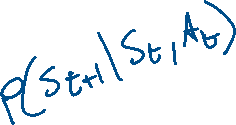 P(S_{t+1} | S_t, A_t)